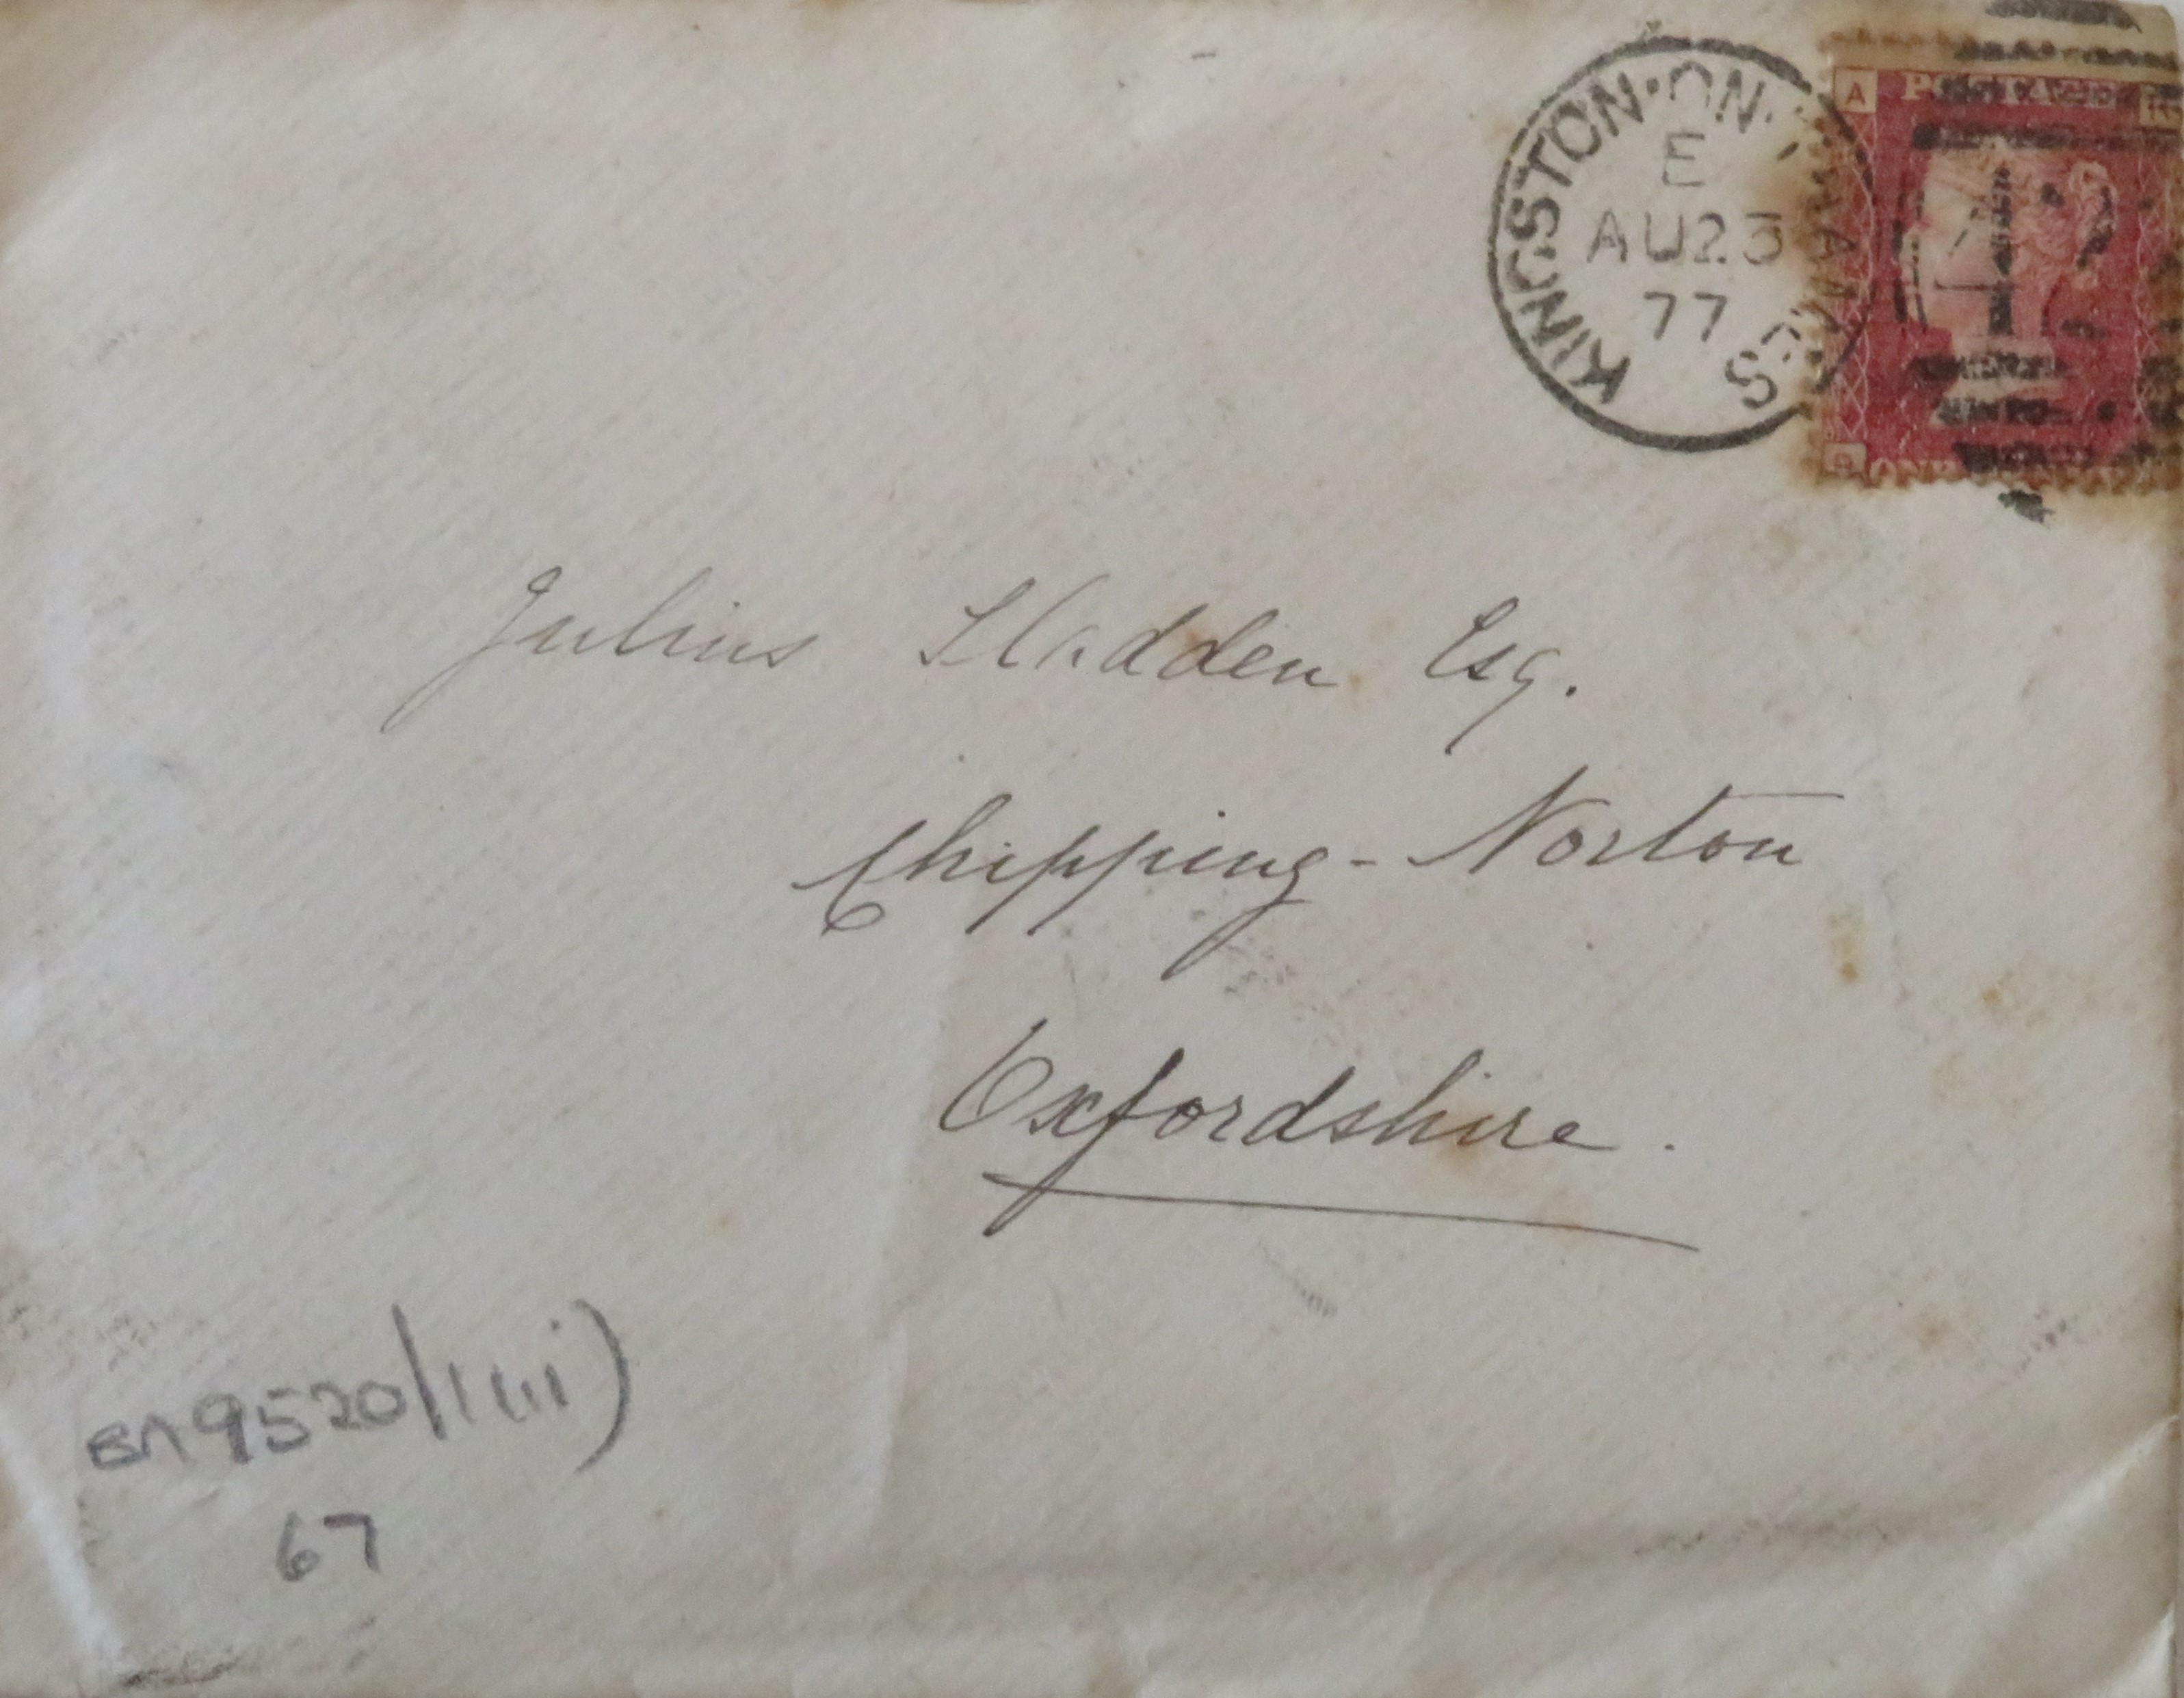 KINGSTON·ON·THAMES
E
AU23
77
A POSTAGE
ONE
Julius Sladden Esq.
Chipping-Norton
Oxfordshire.
67